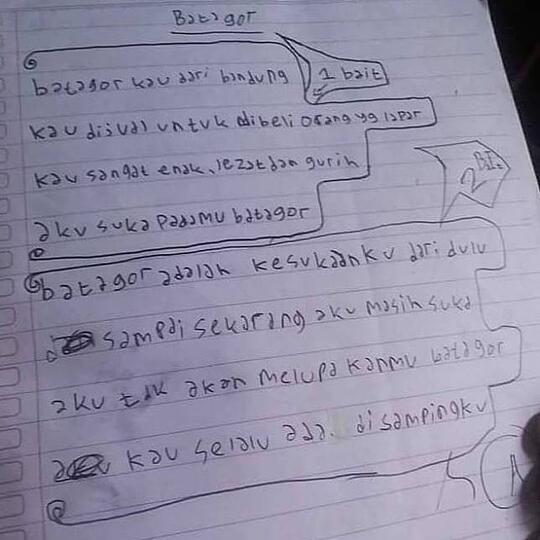 Batagor
batagor kau dari bandung
1 bait
kau dijual untuk dibeli orang yg lapar
kau sangat enak, lezat dan gurih
aku suka padamu batagor
2 BIt
batagor adalah kesukaanku dari dulu
sampai sekarang aku masih suka
aku tak akan melupakanmu batagor
kau selalu ada. disampingku
A